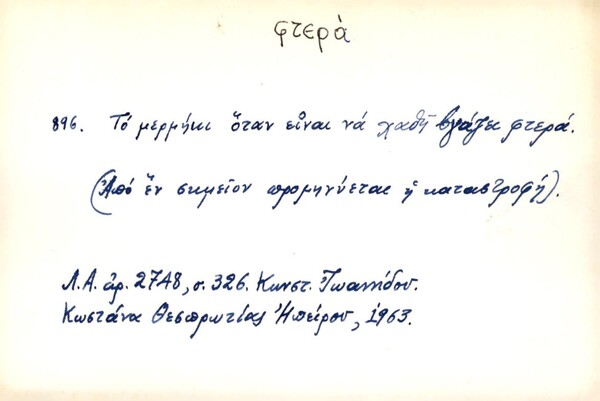 φτερά
896. Τό μερμήκι ὅταν εἶναι νά χαθῆ βγάζει φτερά.
(Ἀπό ἕν σημεῖον προμηνύεται ἡ καταστροφή).
Λ.Α. ἀρ. 2748, σ. 326. Κωνστ. Ἰωαννίδου.
Κωστάνα Θεσπρωτίας Ἠπείρου, 1963.